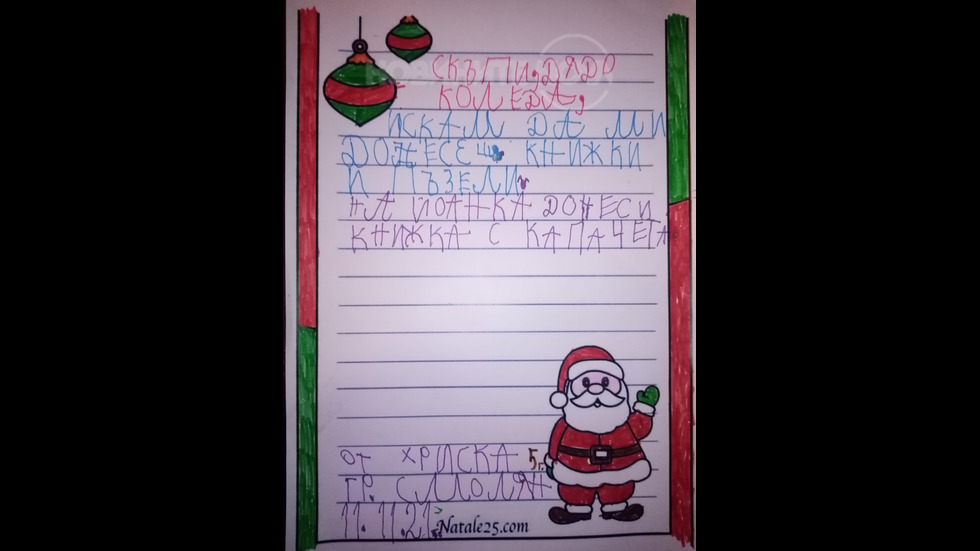 СКЪПИ ДЯДО
КОЛЕДА,
ИСКАМ ДА МИ
ДОНЕСЕШ КНИЖКИ
И ПЪЗЕЛИ
НА ЙОАНКА ДОНЕСИ
КНИЖКА С КАПАЧЕТА
ОТ ХРИСКА 5г.
ГР. СМОЛЯН
11.11.21
Natale25.com